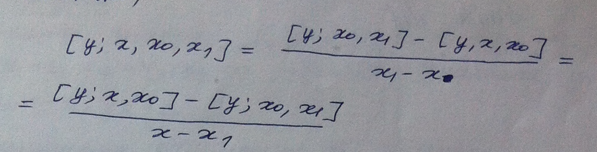 [y; x, x₀, x₁] = \frac{[y; x₀, x₁] - [y, x, x₀]}{x₁ - x.} =
= \frac{[y; x, x₀] - [y; x₀, x₁]}{x - x₁}